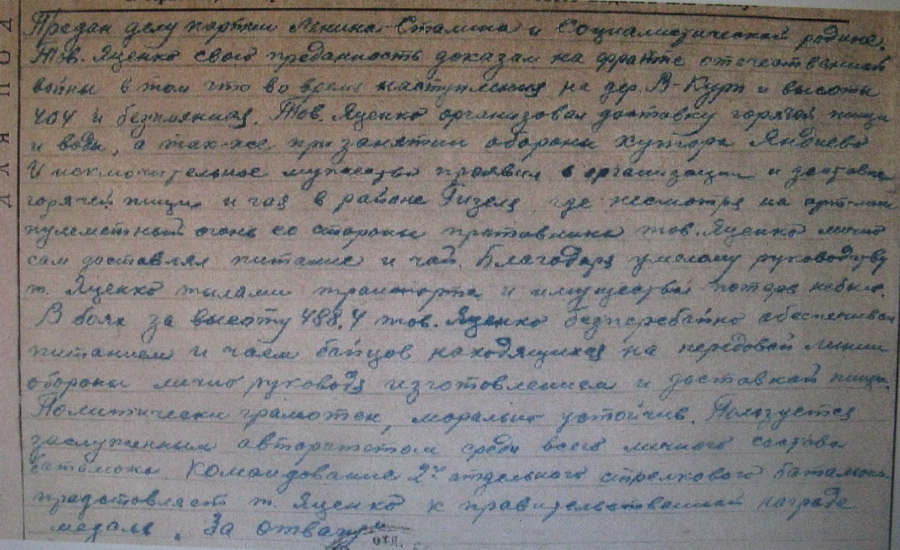 Д Л Я П О Д
Предан делу партии Ленина-Сталина и Социалистической родине.
Тов. Яценко свою преданность доказал на фронте отечественной
войны в том что во время наступления на дер. В-Курп и высоты
404 и безимянная. Тов. Яценко организовал доставку горячей пищи
и воды, а так-же при занятии обороны хутора
И исключительное мужество проявил в организации и доставке
горячей пищи и чая в районе Гизель, где несмотря на
пулеметный огонь со стороны противника тов. Яценко лично
сам доставлял питание и чай. Благодаря умелому руководству
т. Яценко тылами транспорта и имущества потерь небыло.
В боях за высоту 488,4 тов. Яценко безперебайно обеспечивал
питанием и чаем бойцов находящихся на передовой линии
обороны лично руководя изготовлением и доставкой пищи.
Политически грамотен, морально устойчив. Пользуется
заслуженным авторитетом среди всего личного состава
батальона командование 2го отдельного стрелкового батальона
представляет т. Яценко к правительственной награде
медаль "За отвагу"